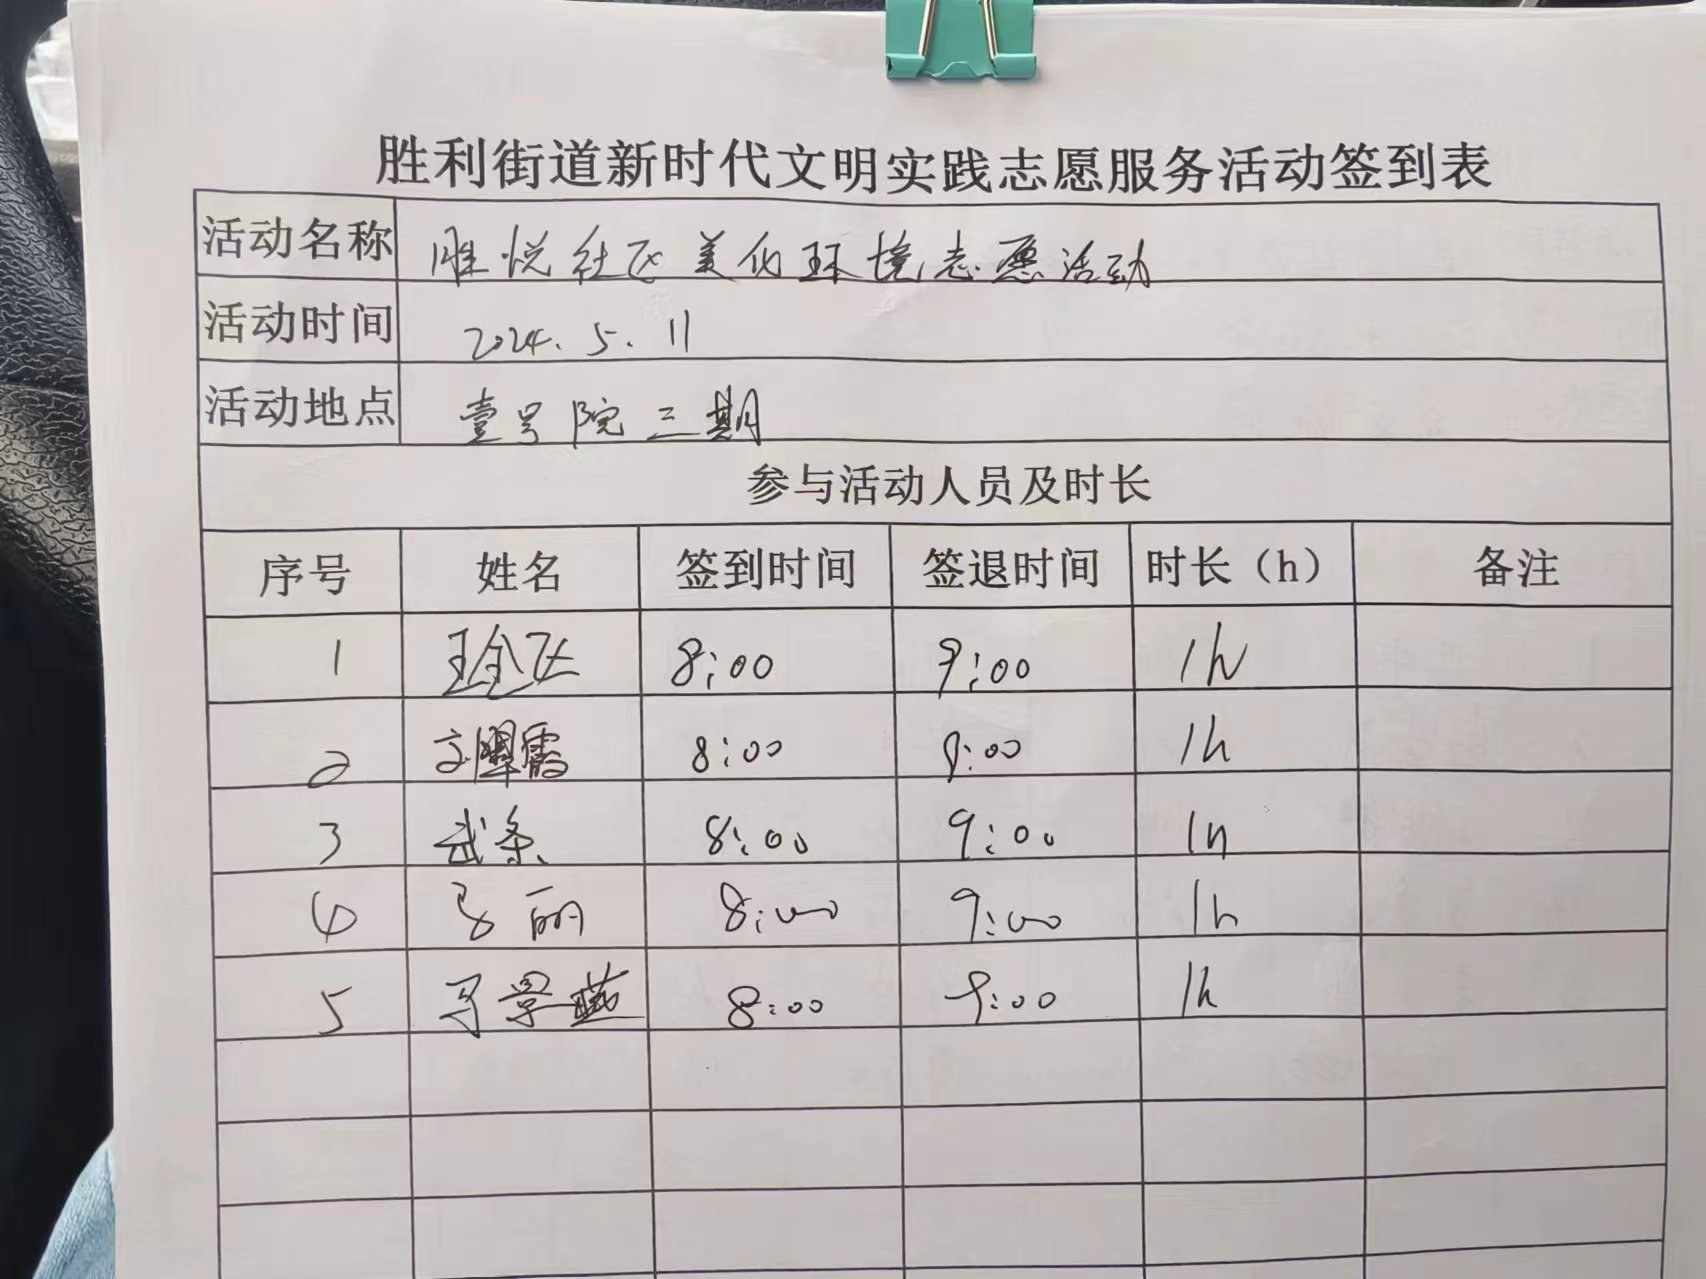 胜利街道新时代文明实践志愿服务活动签到表
活动名称 胜悦社区美化环境志愿活动
活动时间 2024.5.11
活动地点 壹号院三期
参与活动人员及时长
序号 姓名 签到时间 签退时间 时长（h） 备注
1 8:00 9:00 1h
2 8:00 9:00 1h
3 8:00 9:00 1h
4 8:00 9:00 1h
5 8:00 9:00 1h